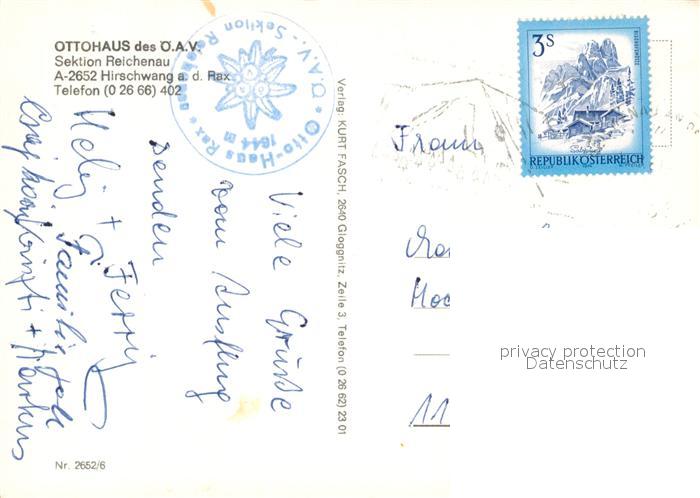 OTTOHAUS des Ö.A.V.
Sektion Reichenau
A-2652 Hirschwang a. d. Rax
Telefon (0 26 66) 402
Ö.A.V. - Sektion Reichenau
Otto-Haus Rax
1644 m
Viele Grüße
vom Ausflug
senden
Heli + Ferry
Familie
+ Markus
Nr. 2652/6
Verlag: KURT FASCH, 2640 Gloggnitz, Zeile 3, Telefon (0 26 62) 23 01
3S
REPUBLIK ÖSTERREICH
Frau
11
privacy protection
Datenschutz